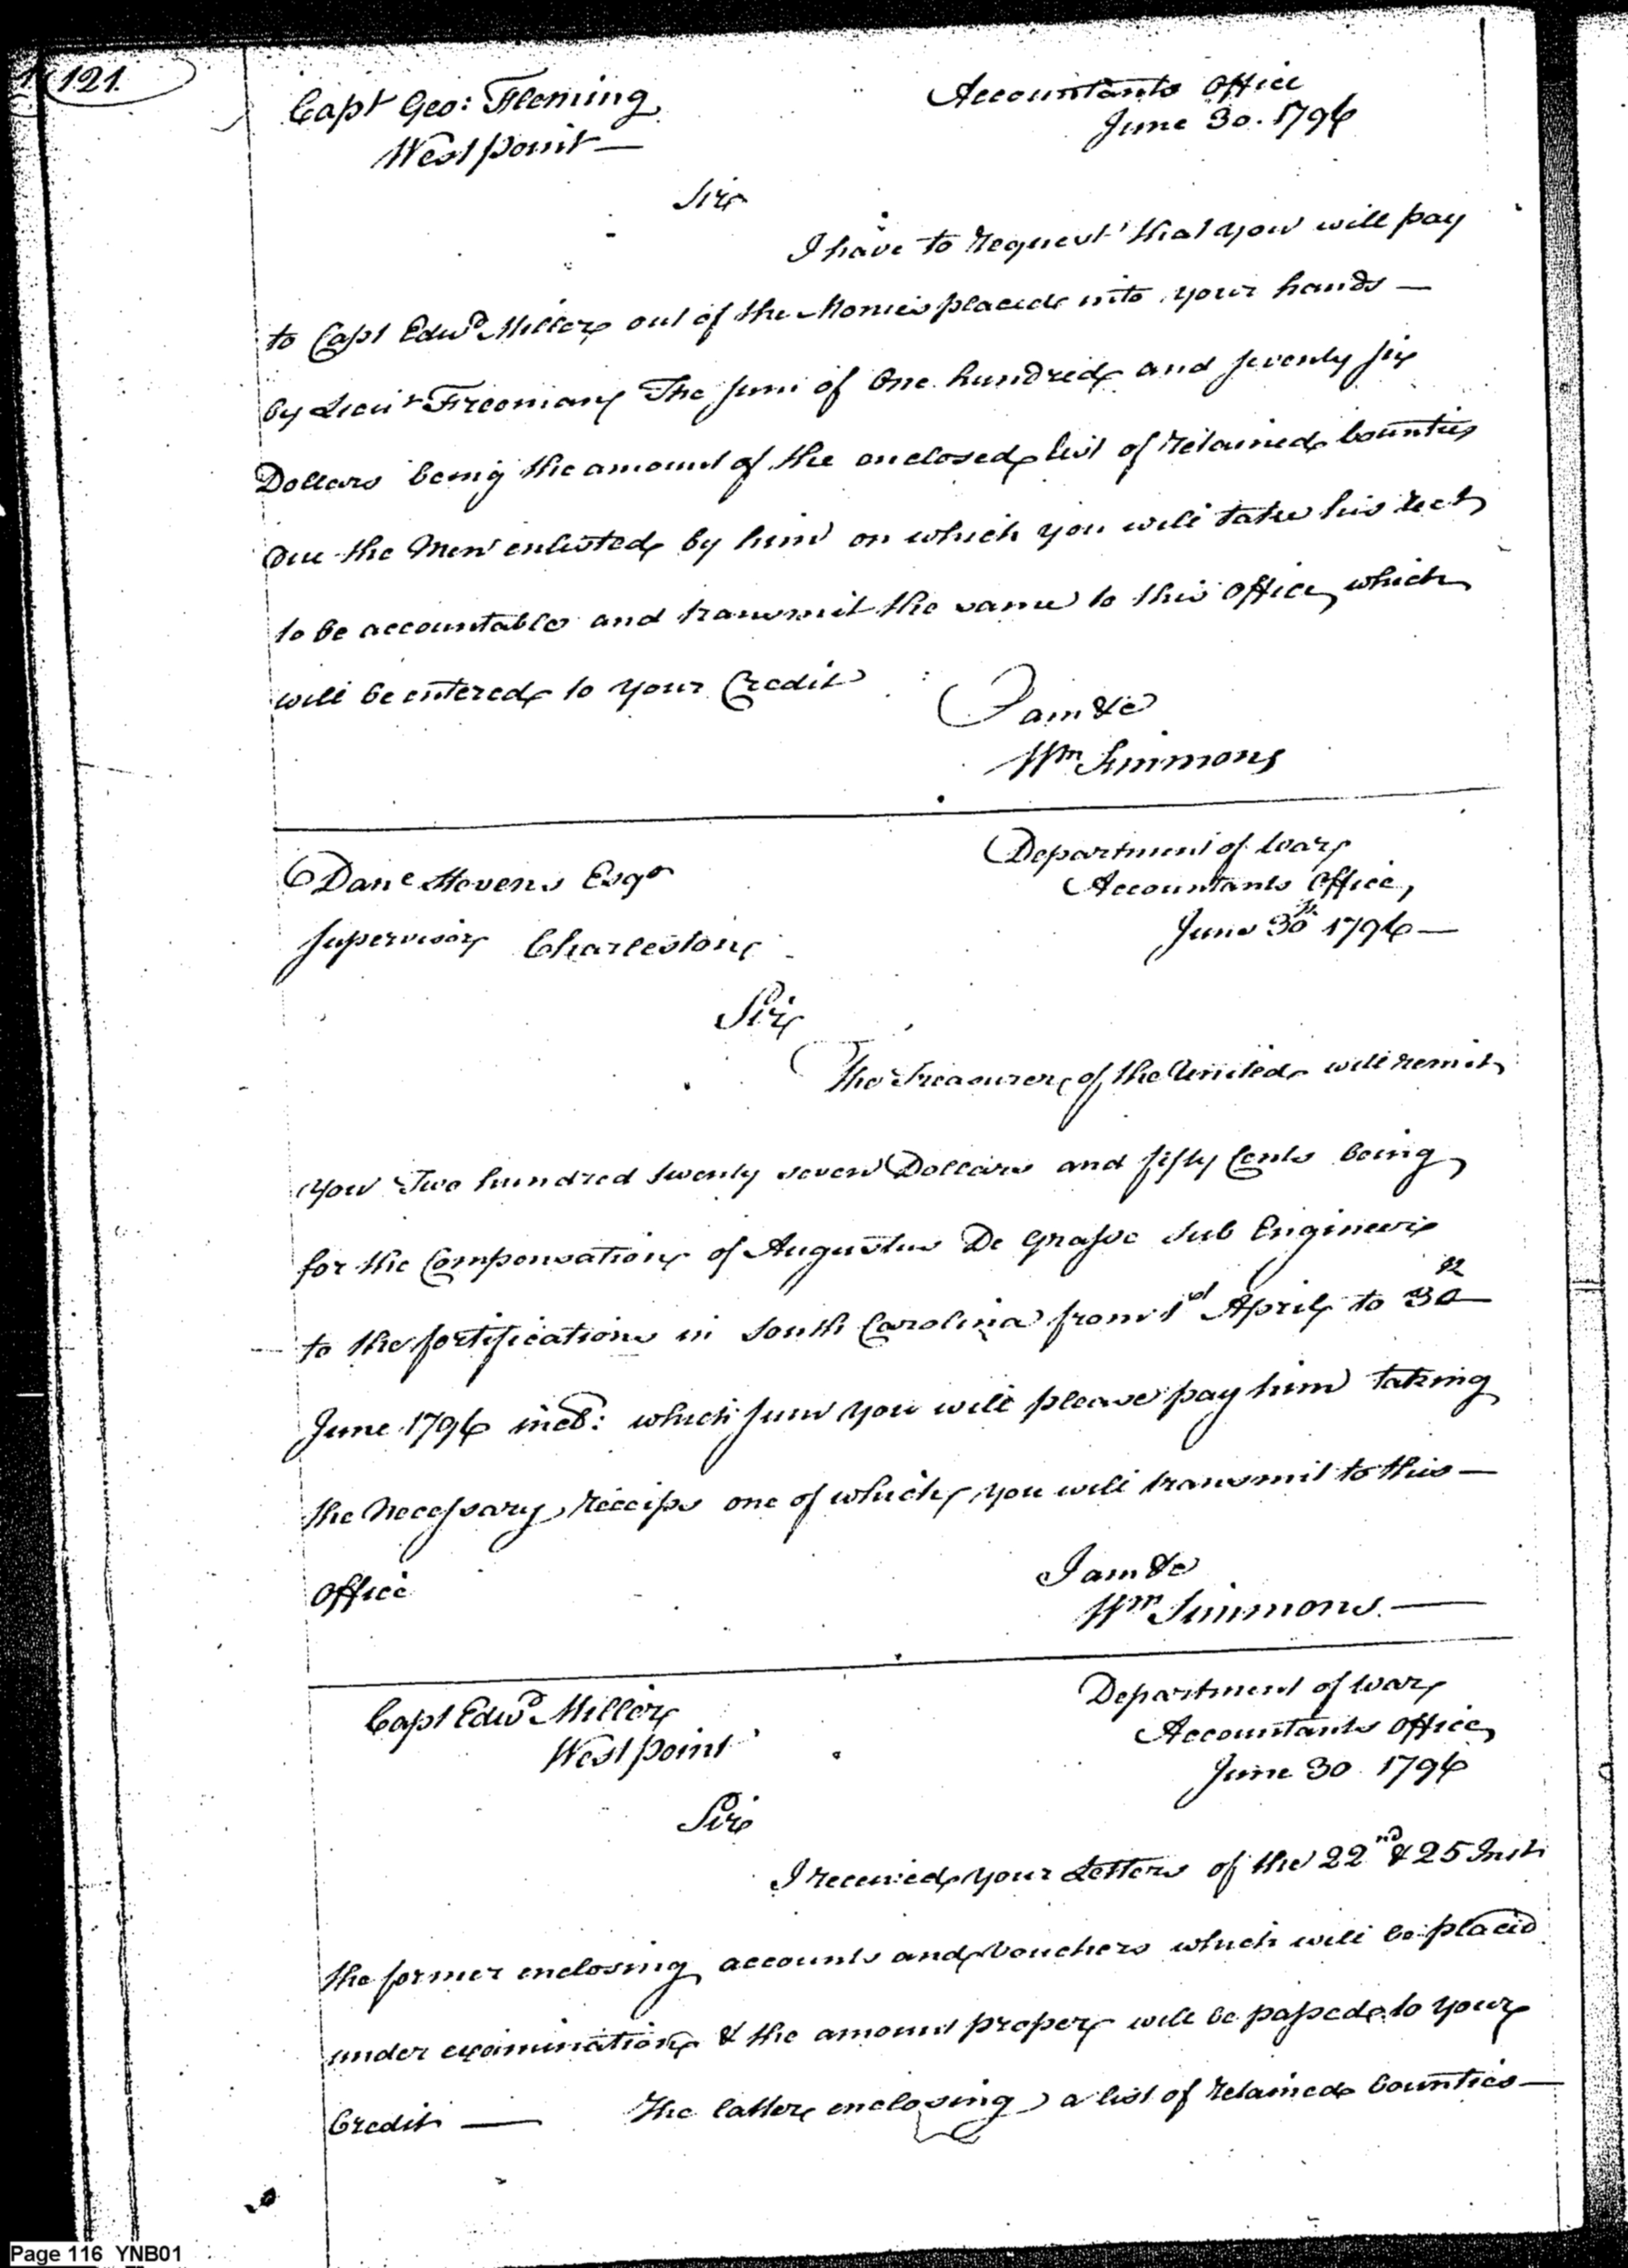 121.
Capt Geo: Fleming
West point —
Accountants office
June 30. 1796
Sir
I have to request that you will pay
to Capt Edwd Miller out of the Monies placed into your hands —
by Lieut Freeman The sum of One hundred and seventy six
Dollars being the amount of the enclosed list of retained bounties
Due the Men enlisted by him on which you will take his rect
to be accountable and transmit the same to this office, which
will be entered to your Credit
I am &c
Wm Simmons
Danl Stevens Esqr
Supervisor Charleston
Department of War
Accountants Office,
June 30th 1796 —
Sir
The Treasurer of the United will remit
you Two hundred twenty seven Dollars and fifty Cents being
for the Compensation of Augustus De Grasse Sub Engineer
to the fortifications in South Carolina from 1st April to 30th
June 1796 incl: which sum you will please pay him taking
the necessary receips one of which you will transmit to this —
office
I am &c
Wm Simmons. —
Capt Edwd Miller
West point
Department of War
Accountants office,
June 30 1796
Sir
I received your Letters of the 22nd & 25 Inst
the former enclosing accounts and vouchers which will be placed
under examination & the amount proper will be passed to your
Credit — The latter enclosing a list of retained bounties —
Page 116 YNB01